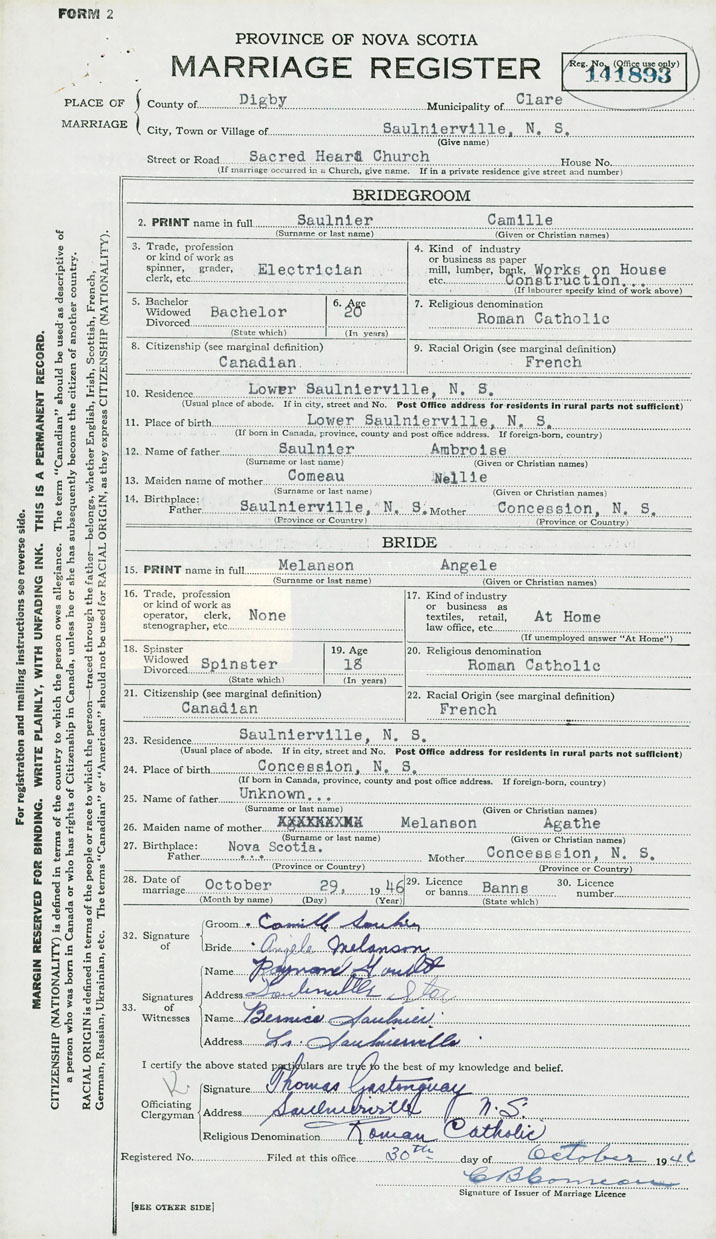 FORM 2
PROVINCE OF NOVA SCOTIA
MARRIAGE REGISTER
Reg. No. (Office use only)
141893
PLACE OF MARRIAGE
County of Digby Municipality of Clare
City, Town or Village of Saulnierville, N. S.
(Give name)
Street or Road Sacred Heart Church House No.
(If marriage occurred in a Church, give name. If in a private residence give street and number)
BRIDEGROOM
2. PRINT name in full Saulnier Camille
(Surname or last name) (Given or Christian names)
3. Trade, profession or kind of work as spinner, grader, clerk, etc. Electrician
4. Kind of industry or business as paper mill, lumber, bank, etc. Works on House Construction...
(If labourer specify kind of work above)
5. Bachelor Widowed Divorced Bachelor
(State which)
6. Age 20
(In years)
7. Religious denomination
Roman Catholic
8. Citizenship (see marginal definition)
Canadian
9. Racial Origin (see marginal definition)
French
10. Residence Lower Saulnierville, N. S.
(Usual place of abode. If in city, street and No. Post Office address for residents in rural parts not sufficient)
11. Place of birth Lower Saulnierville, N. S.
(If born in Canada, province, county and post office address. If foreign-born, country)
12. Name of father Saulnier Ambroise
(Surname or last name) (Given or Christian names)
13. Maiden name of mother Comeau Nellie
(Surname or last name) (Given or Christian names)
14. Birthplace: Father Saulnierville, N. S. Mother Concession, N. S.
(Province or Country) (Province or Country)
BRIDE
15. PRINT name in full Melanson Angele
(Surname or last name) (Given or Christian names)
16. Trade, profession or kind of work as operator, clerk, stenographer, etc. None
17. Kind of industry or business as textiles, retail, law office, etc. At Home
(If unemployed answer "At Home")
18. Spinster Widowed Divorced Spinster
(State which)
19. Age 18
(In years)
20. Religious denomination
Roman Catholic
21. Citizenship (see marginal definition)
Canadian
22. Racial Origin (see marginal definition)
French
23. Residence Saulnierville, N. S.
(Usual place of abode. If in city, street and No. Post Office address for residents in rural parts not sufficient)
24. Place of birth Concession, N. S.
(If born in Canada, province, county and post office address. If foreign-born, country)
25. Name of father Unknown...
(Surname or last name) (Given or Christian names)
26. Maiden name of mother Melanson Agathe
(Surname or last name) (Given or Christian names)
27. Birthplace: Father Nova Scotia. Mother Concesssion, N. S.
(Province or Country) (Province or Country)
28. Date of marriage October 29, 1946
(Month by name) (Day) (Year)
29. Licence or banns Banns
(State which)
30. Licence number
32. Signature of
Groom Camille Saulnier
Bride Angele Melanson
33. Signatures of Witnesses
Name Raymond
Address Saulnierville
Name Bernice Saulnier
Address Lr. Saulnierville
I certify the above stated particulars are true to the best of my knowledge and belief.
Officiating Clergyman
Signature Thomas Gastonguay
Address Saulnierville N.S.
Religious Denomination Roman Catholic
Registered No. Filed at this office 30th day of October 1946
C B Comeau
Signature of Issuer of Marriage Licence
[SEE OTHER SIDE]
For registration and mailing instructions see reverse side.
MARGIN RESERVED FOR BINDING. WRITE PLAINLY, WITH UNFADING INK. THIS IS A PERMANENT RECORD.
CITIZENSHIP (NATIONALITY) is defined in terms of the country to which the person owes allegiance. The term "Canadian" should be used as descriptive of
a person who was born in Canada or who has rights of Citizenship in Canada, unless he or she has subsequently become the citizen of another country.
RACIAL ORIGIN is defined in terms of the people or race to which the person—traced through the father—belongs, whether English, Irish, Scottish, French,
German, Russian, Ukrainian, etc. The terms "Canadian" or "American" should not be used for RACIAL ORIGIN, as they express CITIZENSHIP (NATIONALITY).